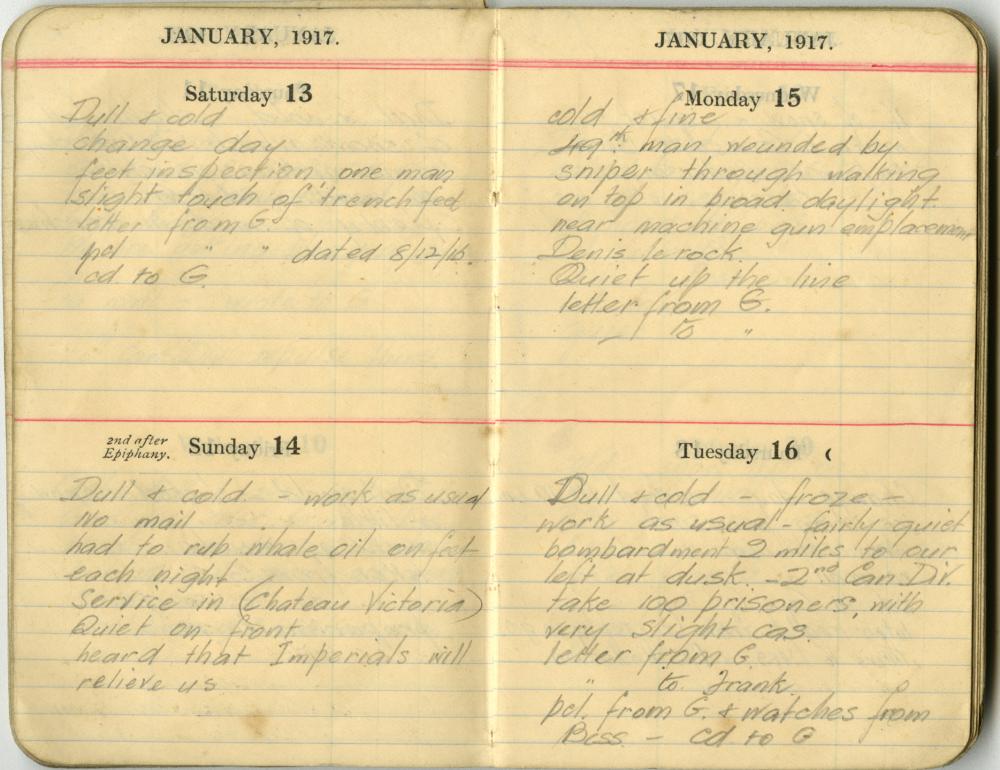 JANUARY, 1917.
Saturday 13
Dull & cold
change day
feet inspection one man
slight touch of trench feet
letter from G.
pcl " " dated 8/12/16.
cd. to G.
2nd after Epiphany. Sunday 14
Dull & cold - work as usual
No mail
had to rub whale oil on feet
each night
Service in (Chateau Victoria)
Quiet on front
heard that Imperials will
relieve us
JANUARY, 1917.
Monday 15
cold & fine
49th man wounded by
sniper through walking
on top in broad daylight
near machine gun emplacement
Denis le rock.
Quiet up the line
letter from G.
to "
Tuesday 16
Dull & cold - froze -
work as usual - fairly quiet
bombardment 2 miles to our
left at dusk. - 2nd Can Div.
take 100 prisoners, with
very slight cas.
letter from G.
" to Frank
pcl. from G. & watches from
- cd to G